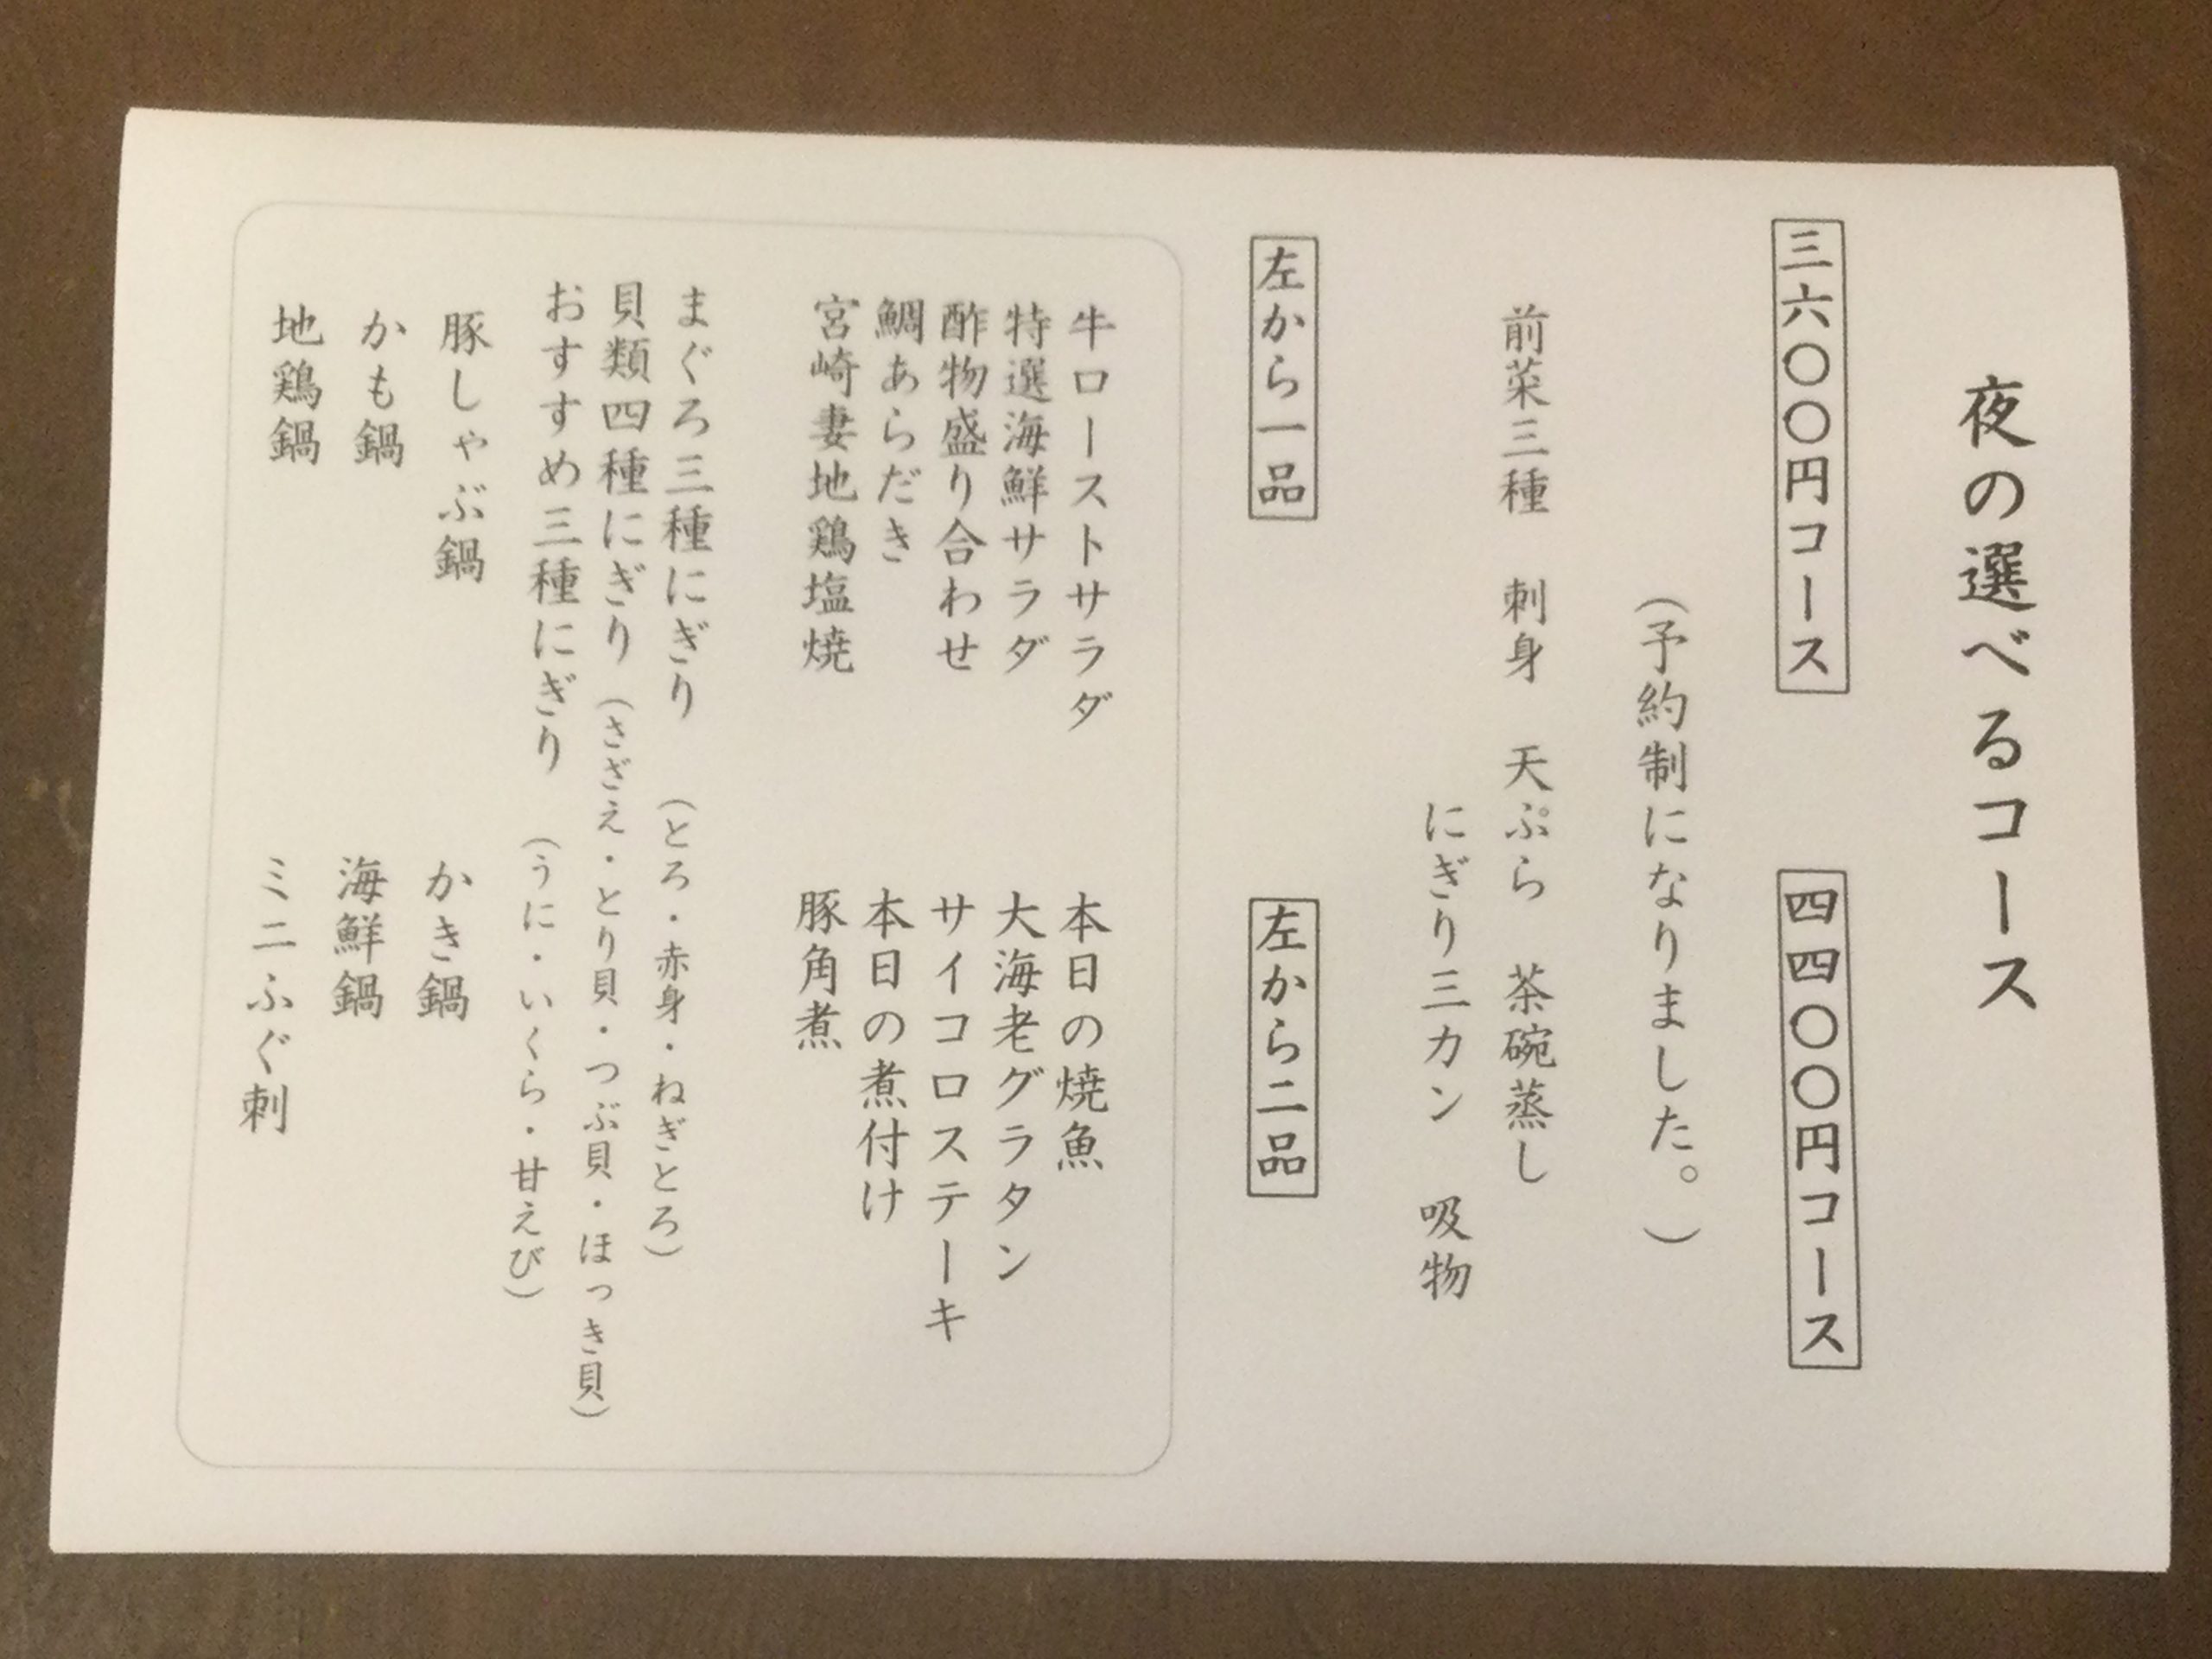 夜の選べるコース
三六〇〇円コース
四四〇〇円コース
（予約制になりました。）
前菜三種　刺身　天ぷら　茶碗蒸し
にぎり三カン　吸物
左から一品
左から二品
牛ローストサラダ
特選海鮮サラダ
酢物盛り合わせ
鯛あらだき
宮崎妻地鶏塩焼
本日の焼魚
大海老グラタン
サイコロステーキ
本日の煮付け
豚角煮
まぐろ三種にぎり　（とろ・赤身・ねぎとろ）
貝類四種にぎり（さざえ・とり貝・つぶ貝・ほっき貝）
おすすめ三種にぎり　（うに・いくら・甘えび）
豚しゃぶ鍋
かも鍋
地鶏鍋
かき鍋
海鮮鍋
ミニふぐ刺